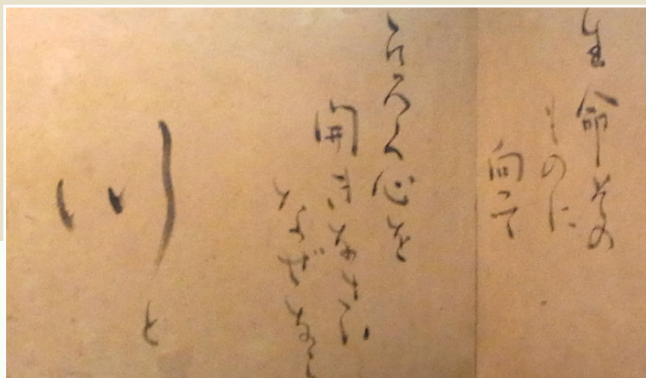 生命その
ものに
向って
ひろく心を
開きなさい
なぜなら
川
と